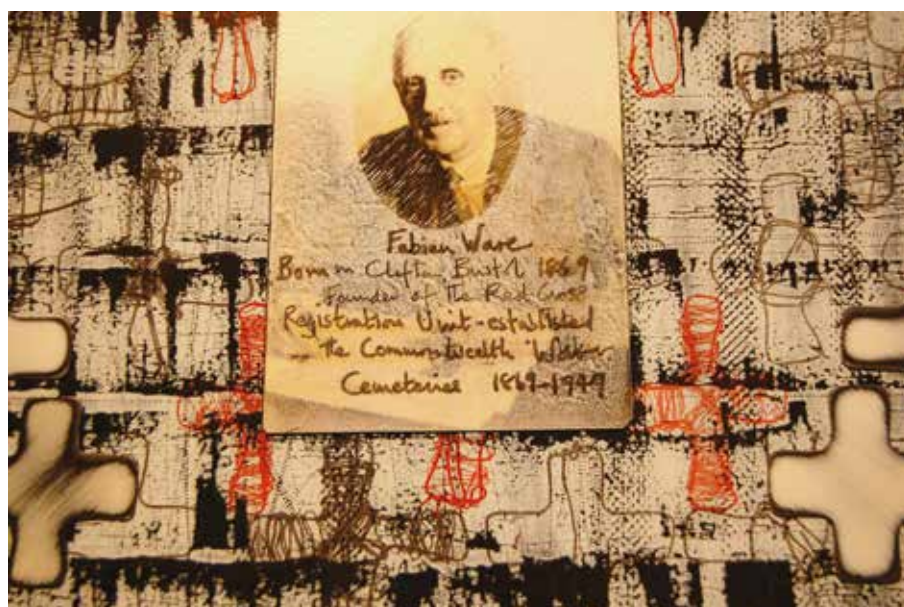 Fabian Ware
Born in Clifton Bristol 1869
Founder of the Red Cross
Registration Unit - established
the Commonwealth
Cemeteries 1869-1949